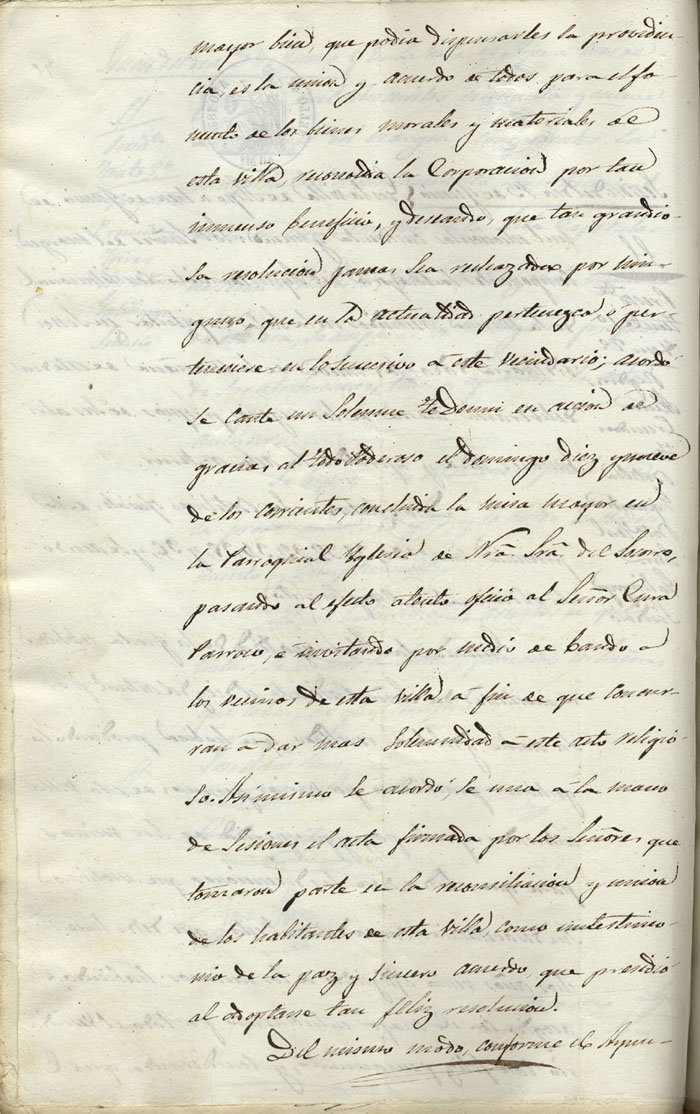 mayor bien, que podia dispensarles la providen-
cia, es la union y acuerdo de todos para el fo-
mento de los bienes morales y materiales de
esta villa, reconocida la Corporacion por tan
inmenso beneficio, y deseando, que tan grandio-
sa resolucion jamas sea rechazada por nin-
guno, que en la actualidad pertenezca, ó per-
teneciere en lo sucesivo a este vecindario; acordó
se cante un Solemne Te Deum en accion de
gracias al todo Poderoso el domingo diez y nueve
de los corrientes, concluida la misa mayor en
la Parroquial Yglesia de Ntrã. Srã. del Socorro,
pasando al efecto atento oficio al Señor Cura
Parroco, é invitando por medio de bando a
los vecinos de esta villa, a fin de que concur-
ran a dar mas solemnidad a este acto religio-
so. Asimismo se acordó, se una á la mano
de Sesiones el acta firmada por los Señores que
tomaron parte en la reconsiliacion y union
de los habitantes de esta villa, como en testimo-
nio de la paz y sincero acuerdo que presidió
al adoptarse tan feliz resolucion.
Del mismo modo, conforme el Ayun-